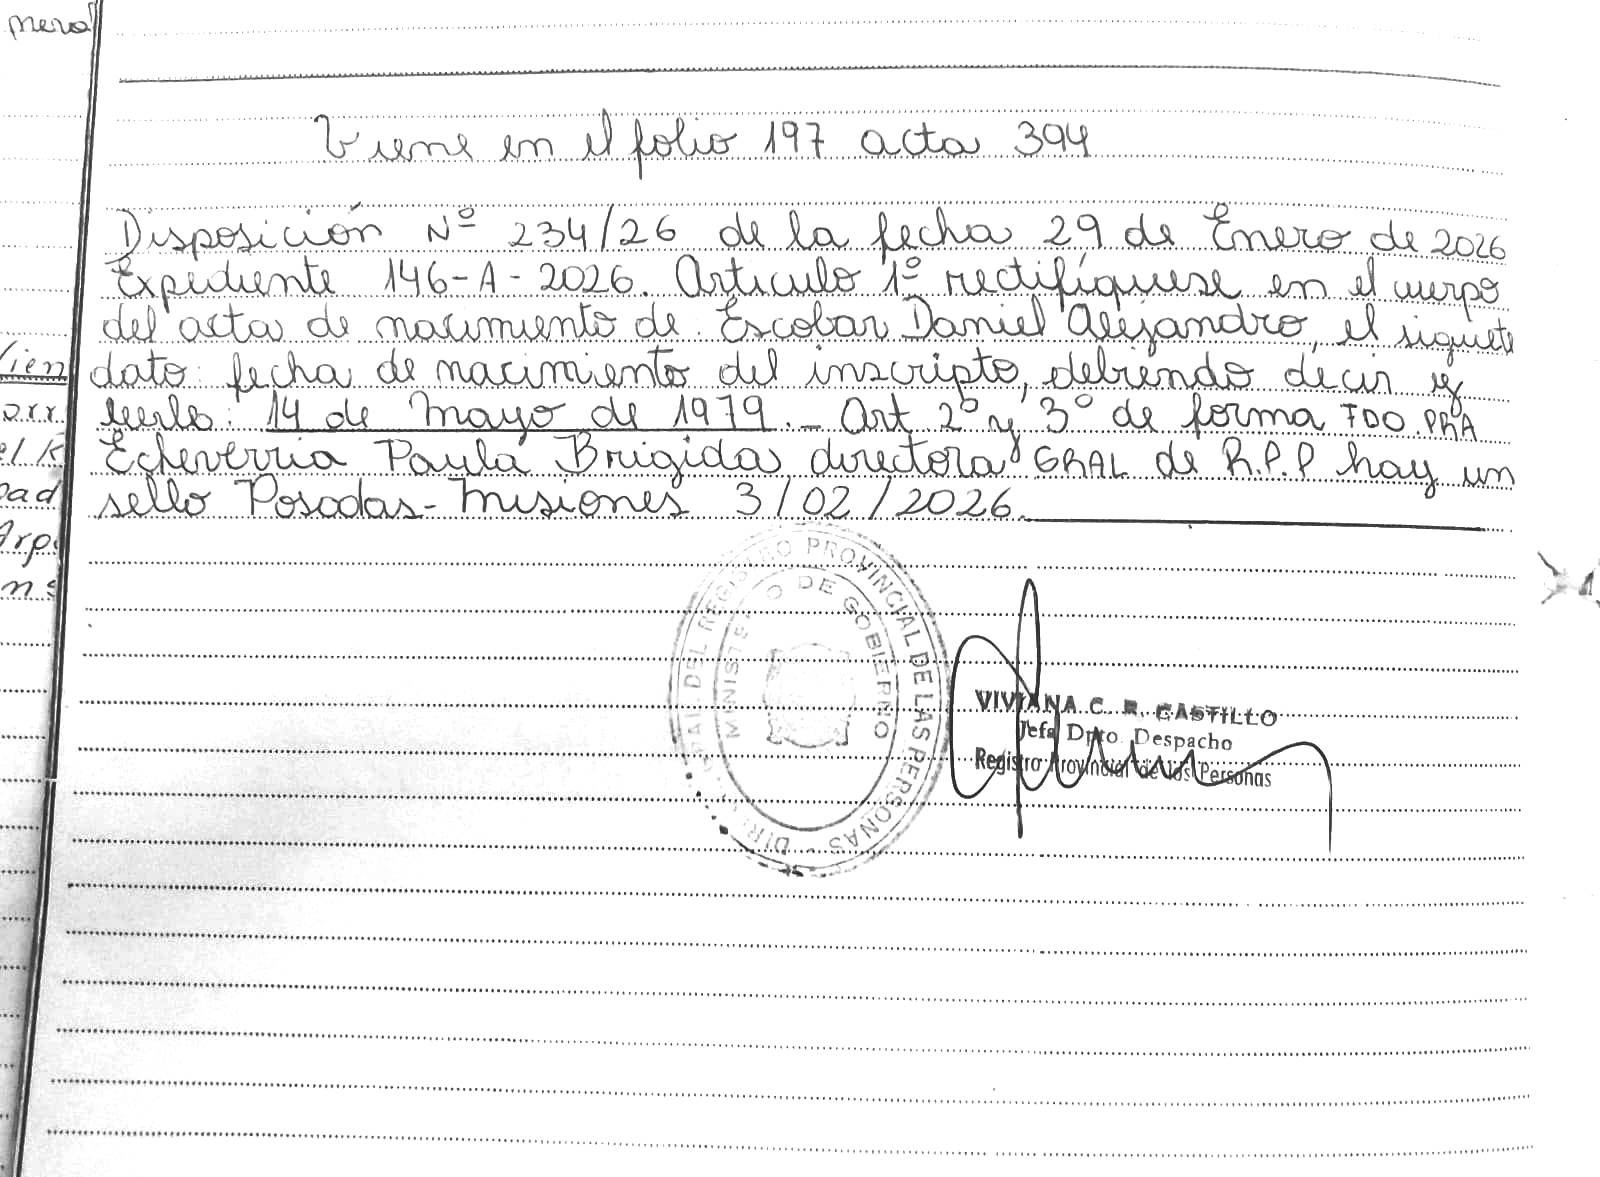 mero
Viene en el folio 197 acta 394
Disposición Nº 234/26 de la fecha 29 de Enero de 2026
Expediente 146-A-2026. Articulo 1º rectifíquese en el cuerpo
del acta de nacimiento de Escobar Daniel Alejandro, el siguete
dato: fecha de nacimiento del inscripto, debiendo decir y
leerse: 14 de Mayo de 1979.- Art 2º y 3º de forma FDO. PRA
Echeverria Paula Brigida directora GRAL de R.P.P hay un
sello Posadas-Misiones 3/02/2026.
DEL REGISTRO PROVINCIAL DE LAS PERSONAS
MINISTERIO DE GOBIERNO
VIVIANA C. R. CASTILLO
Jefa Dpto. Despacho
Registro Provincial de las Personas